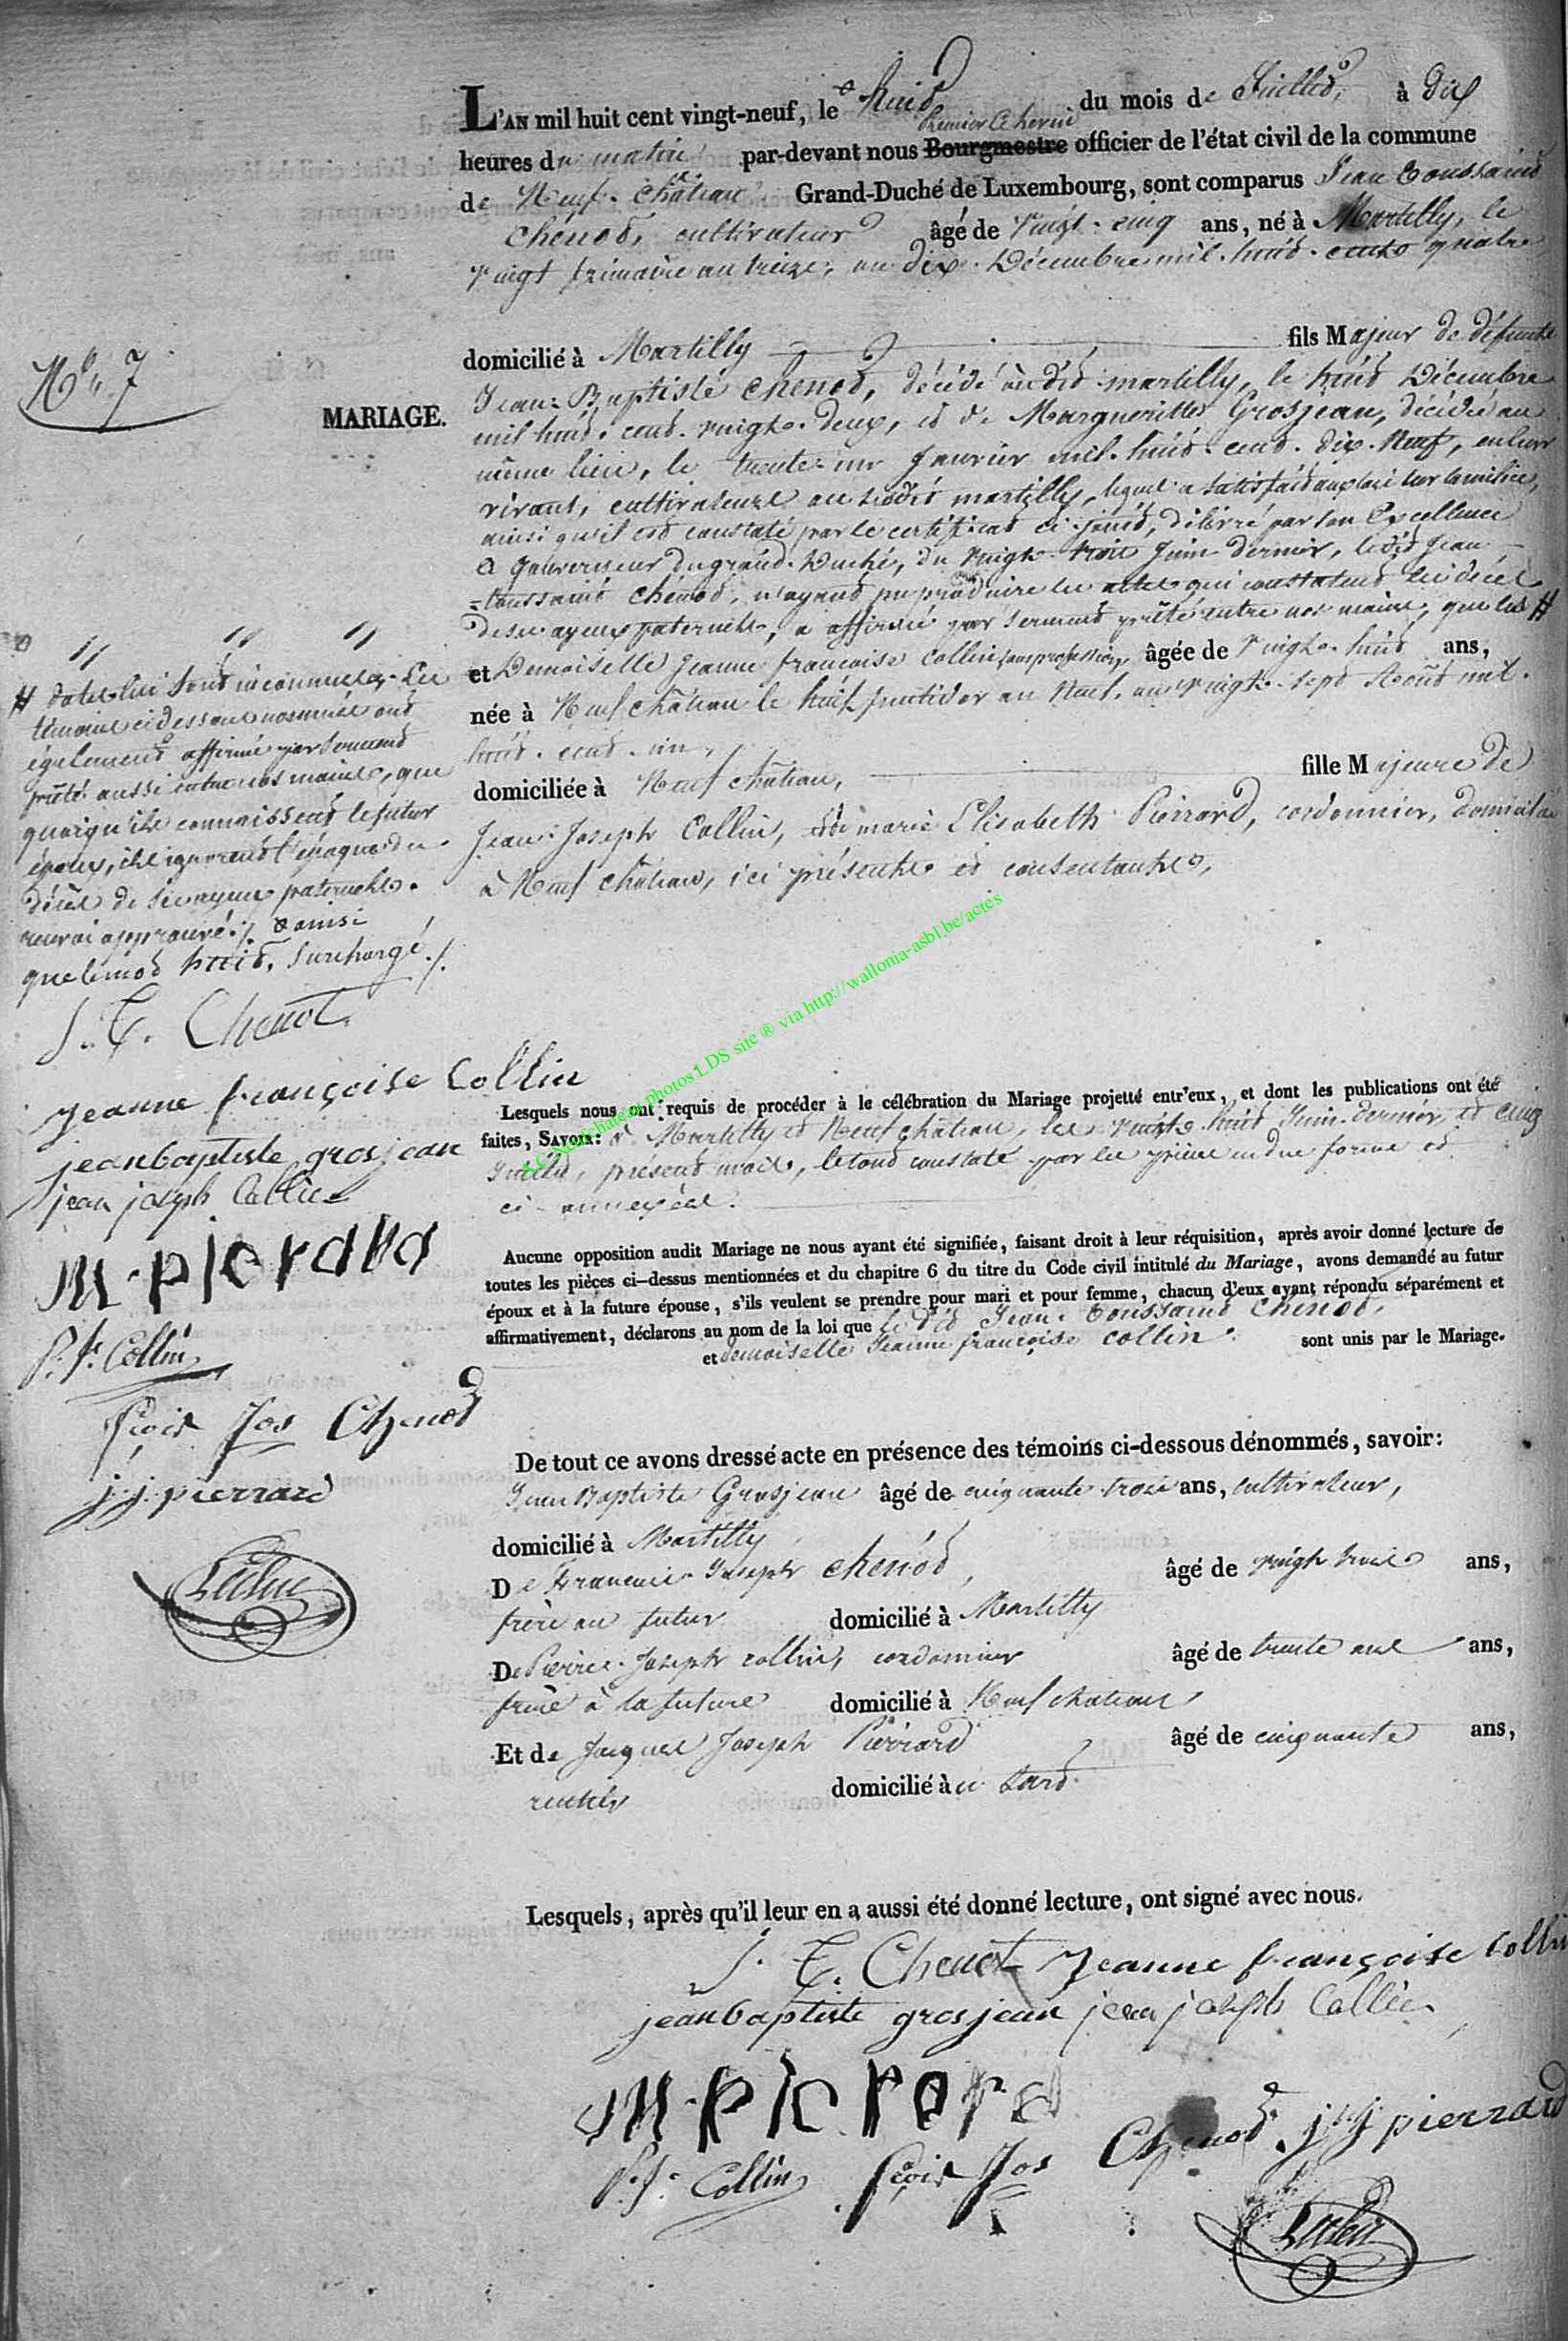 L'AN mil huit cent vingt-neuf, le huit du mois de Juillet, à dix
Premier Echevin
heures du matin par-devant nous Bourgmestre officier de l'état civil de la commune
de Neuf-château Grand-Duché de Luxembourg, sont comparus Jean Toussaint
Chenot, cultivateur âgé de vingt-cinq ans, né à Martilly, le
vingt frimaire an treize, ou dix Décembre mil-huit-cents quatre
domicilié à Martilly fils Majeur de défunts
N° 7
MARIAGE.
Jean-Baptiste Chenot, décédé audit martilly, le huit Décembre
mil huit-cent-vingt-deux, et de Margueritte Grosjean, décédée au
même lieu, le trente-un Janvier mil-huit-cent-dix-Neuf, en leur
vivant, cultivateurs au susdit martilly, lequel a satisfait aux lois sur la milice,
ainsi qu'il est constaté par le certificat ci-joint, délivré par son Excellence
Gouverneur du grand-Duché, du vingt-trois Juin dernier, ledit Jean
-toussaint Chénot, n'ayant pu produire les actes qui constatent les décès
de ses ayeux paternels, a affirmé par serment prêté entre nos mains, que les #
et Demoiselle Jeanne françoise Collin sans profession, âgée de vingt-huit ans,
née à Neufchâteau le huit fructidor an Neuf, ou vingt-sept Août mil-
huit-cent-un,
domiciliée à Neufchâteau, fille Majeure de
Jean-Joseph Collin, et de marie Elisabeth Pierrard, cordonnier, domiciliés
à Neufchâteau, ici présents et consentants,
# dates lui sont inconnues. Les
témoins ci dessous nommés ont
également affirmé par serment
prêté aussi entre nos mains, que
quoiqu'ils connaissent le futur
époux, ils ignorent l'époque du
décès de ses ayeux paternels.
renvoi approuvé ./. ainsi
que le mot huit, surchargé ./.
J. T. Chenot
Jeanne françoise Collin
jeanbaptiste grosjean
jean joseph Collin
M. pierard
P. J. Collin
fçois Jos Chenot
j. j. pierrard
Lesquels nous ont requis de procéder à le célébration du Mariage projetté entr'eux, et dont les publications ont été
faites, SAVOIR: à Martilly et Neufchâteau, les vingt-huit Juin dernier et cinq
Juillet, présent mois, le tout constaté par les pièces en due forme et
ci-annexées.
Neufchateau photos LDS site ® via http://wallonia-asbl.be/actes
Aucune opposition audit Mariage ne nous ayant été signifiée, faisant droit à leur réquisition, après avoir donné lecture de
toutes les pièces ci-dessus mentionnées et du chapitre 6 du titre du Code civil intitulé du Mariage, avons demandé au futur
époux et à la future épouse, s'ils veulent se prendre pour mari et pour femme, chacun d'eux ayant répondu séparément et
affirmativement, déclarons au nom de la loi que le dit Jean-Toussaint Chenot,
et demoiselle Jeanne françoise Collin sont unis par le Mariage.
De tout ce avons dressé acte en présence des témoins ci-dessous dénommés, savoir:
Jean Baptiste Grosjean âgé de cinquante trois ans, cultivateur,
domicilié à Martilly
De François-Joseph Chenot, âgé de vingt trois ans,
frère au futur domicilié à Martilly
De Pierre-Joseph collin, cordonnier âgé de trente ans,
frère à la future domicilié à Neufchateau,
Et de Jacques Joseph Pierrard âgé de cinquante ans,
rentier domicilié à
Lesquels, après qu'il leur en a aussi été donné lecture, ont signé avec nous.
J. T. Chenot Jeanne françoise Collin
jeanbaptiste grosjean jean joseph Collin
M. pierard
P. J. Collin fçois Jos Chenot j. j. pierrard